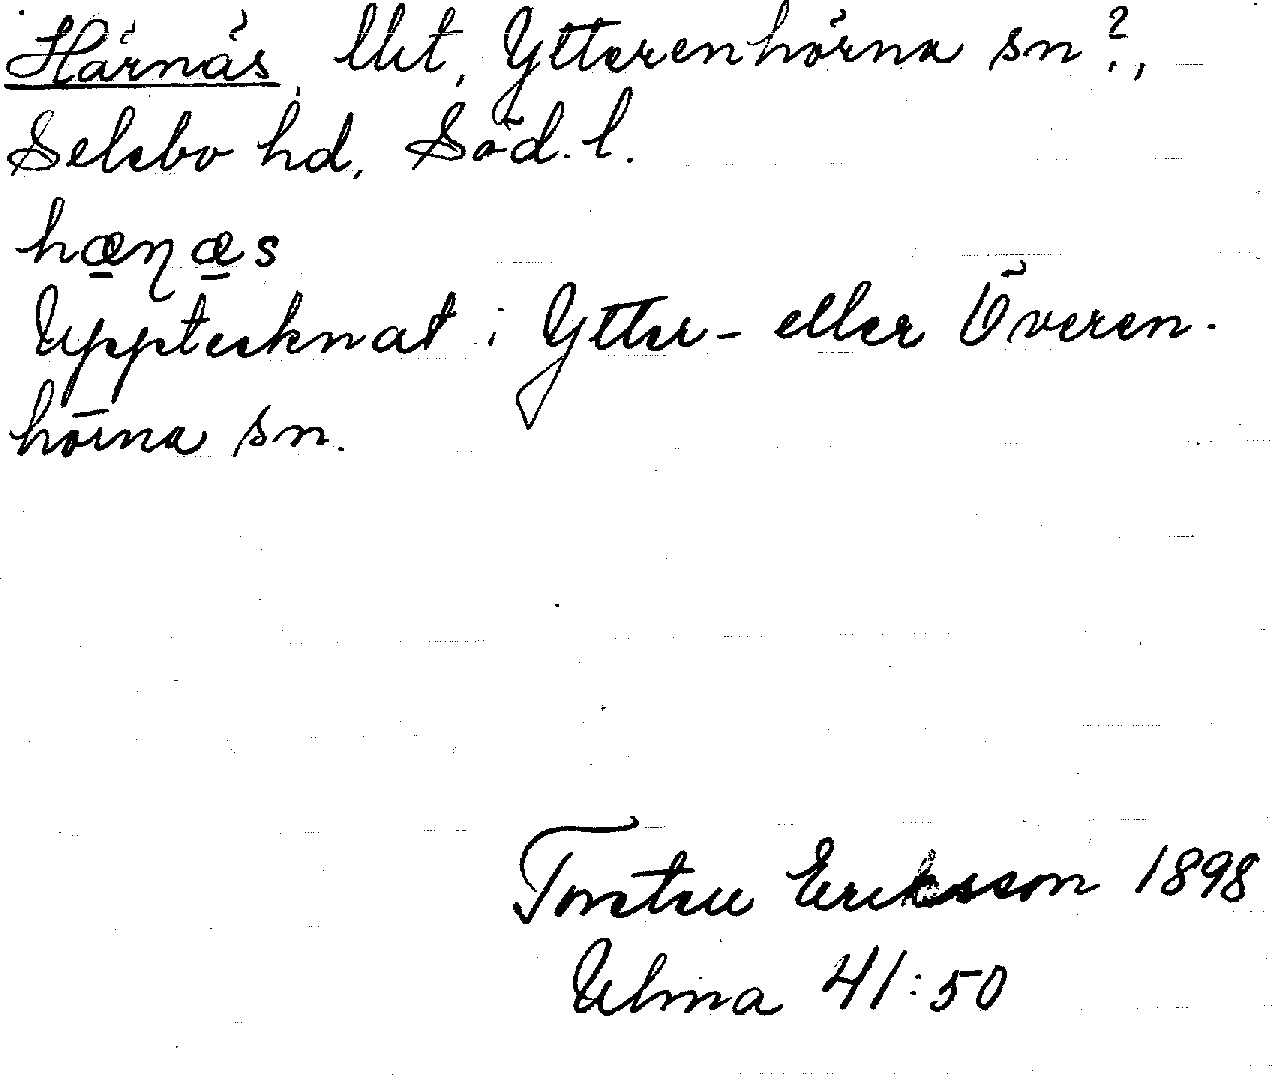 Härnäs, Ukt, Ytterenhörna sn?,
Selebo hd, Söd. l.
hæɳæs
Upptecknat i Ytter- eller Överen-
hörna sn.
Torsten Eriksson 1898
Ulma 41:50